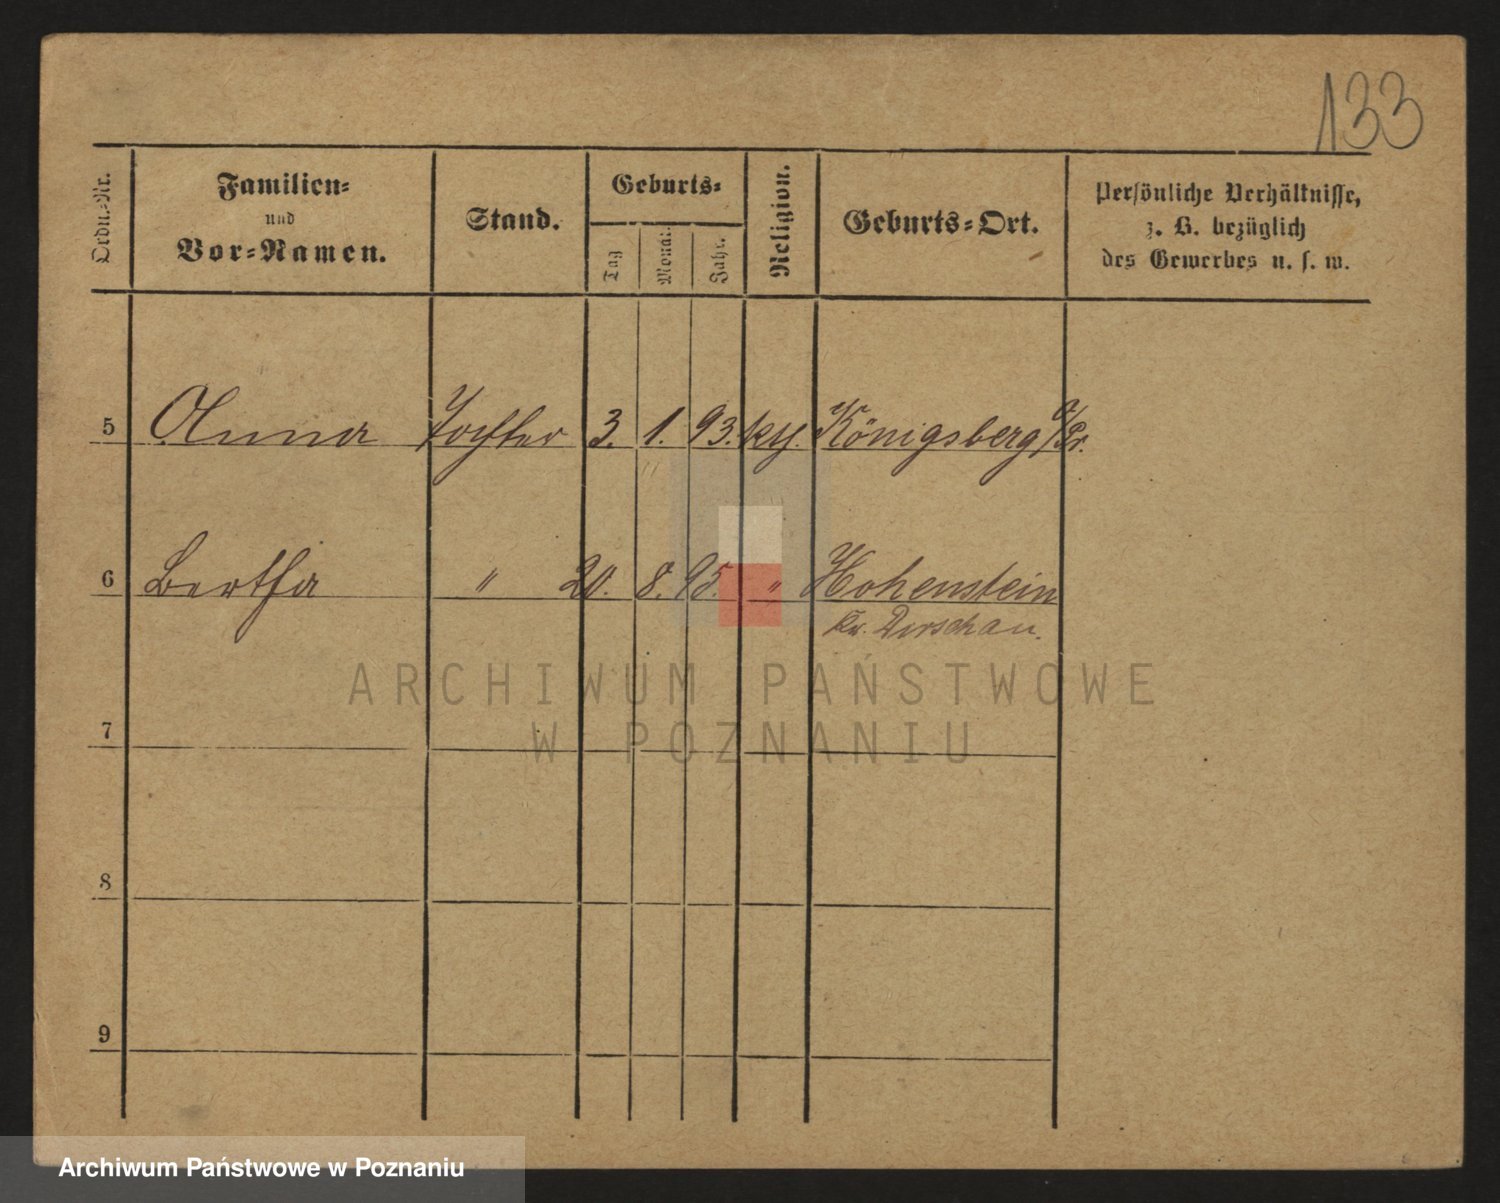 133
Ordn.-Nr. Familien- und Vor-Namen. Stand. Geburts- Tag Monat. Jahr. Religion. Geburts-Ort. Persönliche Verhältnisse, z. B. bezüglich des Gewerbes u. s. w.
5 Anna Tochter 3. 1. 93. kth. Königsberg O/Pr.
6 Bertha " 20. 8. 95. " Hohenstein
Kr. Dirschau.
7
8
9
ARCHIWUM PAŃSTWOWE
W POZNANIU
Archiwum Państwowe w Poznaniu